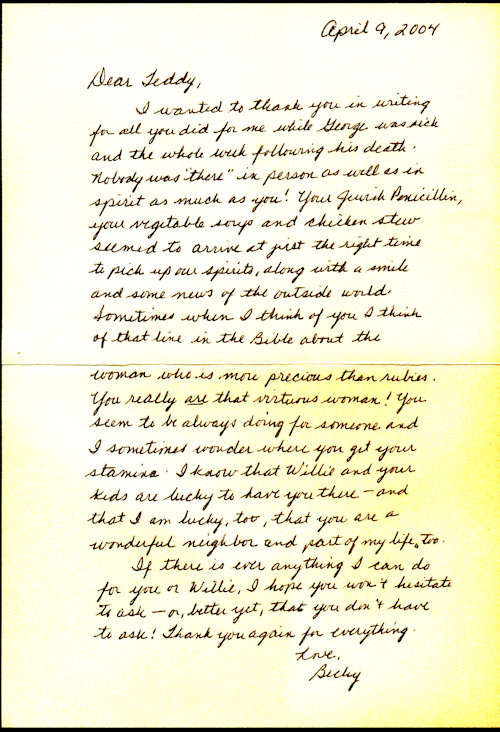 April 9, 2004
Dear Teddy,
I wanted to thank you in writing
for all you did for me while George was sick
and the whole week following his death.
Nobody was "there" in person as well as in
spirit as much as you! Your Jewish Penicillin,
your vegetable soups and chicken stew
seemed to arrive at just the right time
to pick up our spirits, along with a smile
and some news of the outside world.
Sometimes when I think of you I think
of that line in the Bible about the
woman who is more precious than rubies.
You really are that virtuous woman! You
seem to be always doing for someone and
I sometimes wonder where you get your
stamina. I know that Willie and your
kids are lucky to have you there – and
that I am lucky, too, that you are a
wonderful neighbor and part of my life, too.
If there is ever anything I can do
for you or Willie, I hope you won't hesitate
to ask – or, better yet, that you don't have
to ask! Thank you again for everything.
Love,
Becky